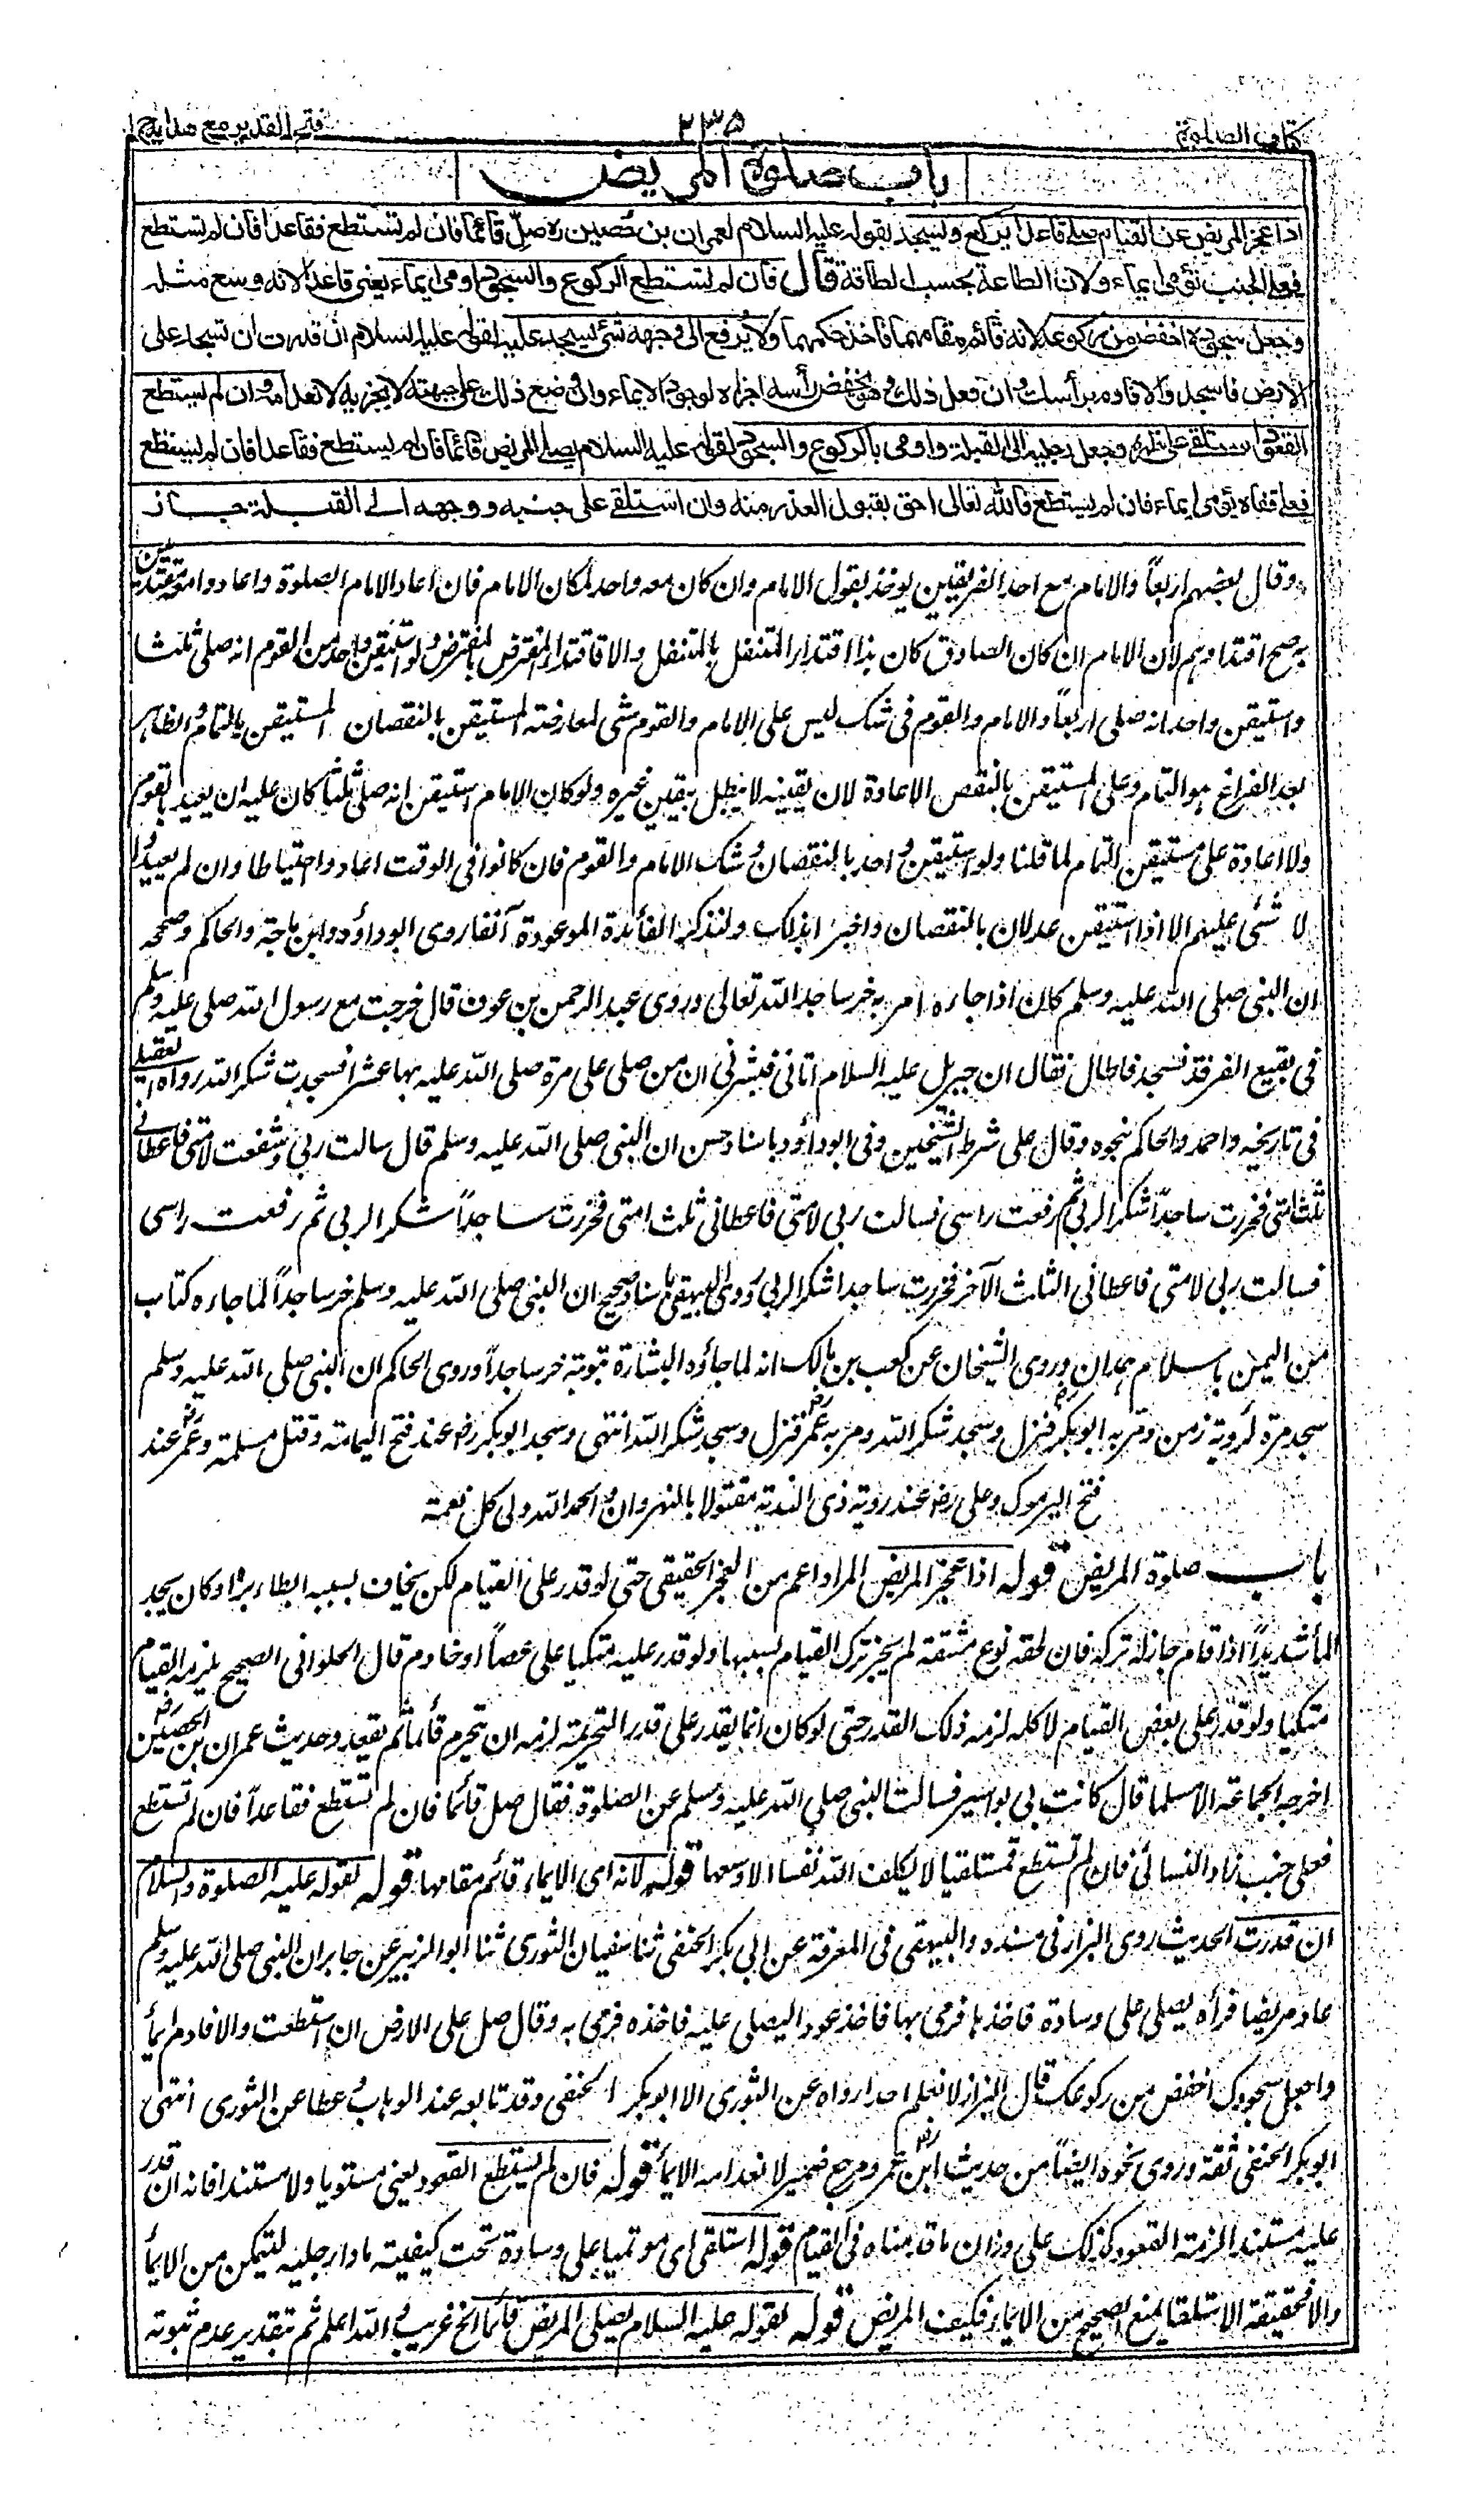 كتاب الصلوة
۲۳۵
فتح القدير مع هدايه ج١
باب صلوة المريض
اذا عجز المريض عن القيام صلى قاعدا يركع ويسجد بقوله عليه السلام لعمران بن حصين رض صلّ قائما فان لم تستطع فقاعدا فان لم تستطع
فعلى الجنب تؤمى ايماء ولان الطاعة بحسب الطاقة قال فان لم يستطع الركوع والسجود اومى ايماء يعنى قاعدا لانه وسع مثله
وجعل سجوده اخفض من ركوعه لانه قائم مقامهما فاخذ حكمهما ولا يرفع الى وجهه شئ يسجد عليه لقوله عليه السلام ان قدرت ان تسجد على
الارض فاسجد والا فاوم براسك وان فعل ذلك وهو يخفض رأسه اجزاه لوجود الايماء وان وضع ذلك على جبهته لا يجزيه لانعدامه وان لم يستطع
القعود استلقى على ظهره وجعل رجليه الى القبلة واومى بالركوع والسجود لقوله عليه السلام يصلى المريض قائما فان لم يستطع فقاعدا فان لم يستطع
فعلى قفاه يؤمى ايماء فان لم يستطع فالله تعالى احق بقبول العذر منه وان استلقى على جنبه ووجهه الى القبلة جاز
وقال بعضهم اربعاً والامام مع احد الفريقين يوخذ بقول الامام وان كان معه واحد لمكان الامام فان اعاد الامام الصلوة واعادوا معه مقتدين
به صح اقتداؤهم لان الامام ان كان الصادق كان هذا اقتداء المتنفل بالمتنفل والا فاقتداء المفترض بالمفترض ولو استيقن واحد من القوم انه صلى ثلثا
واستيقن واحد انه صلى اربعاً والامام والقوم فى شك ليس على الامام والقوم شئ لمعارضته المستيقن بالنقصان المستيقن بالتمام والظاهر
بعد الفراغ هو التمام وعلى المستيقن بالنقص الاعادة لان يقينه لا يبطل بيقين غيره ولو كان الامام استيقن انه صلى ثلثا كان عليه ان يعيد بالقوم
ولا اعادة على مستيقن التمام لما قلنا ولو استيقن واحد بالنقصان وشك الامام والقوم فان كانوا فى الوقت اعادوا احتياطا وان لم يعيدوا
لا شئ عليهم الا اذا استيقن عدلان بالنقصان واخبرا بذلك ولنذكر الفائدة الموعودة آنفا روى ابو داؤد وابن ماجة والحاكم وصححه
ان النبى صلى الله عليه وسلم كان اذا جاءه امر به خر ساجدا لله تعالى وروى عبد الرحمن بن عوف قال خرجت مع رسول الله صلى عليه وسلم
فى بقيع الغرقد فسجد فاطال فقال ان جبريل عليه السلام اتانى فبشرنى ان من صلى على مرة صلى الله عليه بها عشرا فسجدت شكرا لله رواه العقيلى
فى تاريخه واحمد والحاكم نحوه وقال على شرط الشيخين وفى ابو داؤد باسناد حسن ان النبى صلى الله عليه وسلم قال سالت ربى وشفعت لامتى فاعطانى
ثلث امتى فخررت ساجداً شكرا لربى ثم رفعت راسى فسالت ربى لامتى فاعطانى ثلث امتى فخررت ساجداً شكرا لربى ثم رفعت راسى
فسالت ربى لامتى فاعطانى الثلث الآخر فخررت ساجدا شكرا لربى وروى البيهقى باسناد صحيح ان النبى صلى الله عليه وسلم خر ساجداً لما جاءه كتاب
من اليمن باسلام همدان وروى الشيخان عن كعب بن مالك انه لما جاؤه البشارة بتوبته خر ساجداً وروى الحاكم ان النبى صلى الله عليه وسلم
سجد مرة لرؤية زمن ومر به ابو بكر رض فنزل وسجد شكرا لله ومر به عمر رض فنزل وسجد شكرا لله انتهى وسجد ابو بكر رض عند فتح اليمامة وقتل مسلمة وعمر رض عند
فتح اليرموك وعلى رض عند روية ذى الثدية مقتولا بالنهروان والحمد لله ولى كل نعمة
باب صلوة المريض قوله اذا عجز المريض المراد اعم من العجز الحقيقى حتى لو قدر على القيام لكن يخاف بسببه ابطاء برء او كان يجد
الماً شديداً اذا قام جاز له تركه فان لحقه نوع مشقة لم يجز ترك القيام بسببها ولو قدر عليه متكيا على عصاً او خادم قال الحلوانى الصحيح يلزمه القيام
متكيا ولو قدر على بعض القيام لا كله لزمه ذلك القدر حتى لو كان انما يقدر على قدر التحريمة لزمه ان يتحرم قائماً ثم يقعد وحديث عمران بن الحصين رض
اخرجه الجماعة الا مسلما قال كانت بى بواسير فسالت النبى صلى الله عليه وسلم عن الصلوة فقال صل قائما فان لم تستطع فقاعداً فان لم تستطع
فعلى جنب زاد النسائى فان لم تستطع فمستلقيا لا يكلف الله نفسا الا وسعها قوله لانه اى الايماء قائم مقامها قوله لقوله عليه الصلوة والسلام
ان قدرت الحديث روى البزار فى مسنده والبيهقى فى المعرفة عن ابى بكر الحنفى ثنا سفيان الثورى ثنا ابو الزبير عن جابر ان النبى صلى الله عليه وسلم
عاد مريضا فرأه يصلى على وسادة فاخذها فرمى بها فاخذ عودا ليصلى عليه فاخذه فرمى به وقال صل على الارض ان استطعت والا فاوم ايمأ
واجعل سجودك اخفض من ركوعك قال البزار لا نعلم احدا رواه عن الثورى الا ابو بكر الحنفى وقد تابعه عند الوهاب وعطا عن الثورى انتهى
ابو بكر الحنفى ثقة وروى نحوه ايضاً من حديث ابن عمر رض ومرجع ضمير لانعدامه الايمأ قوله فان لم يستطع القعود يعنى مستويا ولا مستندا فانه ان قدر
عليه مستندا لزمه القعود كذلك على وزان ما قدمناه فى القيام قوله استلقى اى مؤتميا على وسادة تحت كيفيته مادا رجليه ليتمكن من الايمأ
والا فحقيقة الاستلقا يمنع الصحيح من الايماء فكيف المريض قوله لقوله عليه السلام يصلى المريض قائما الخ غريب والله اعلم ثم بتقدير عدم ثبوته